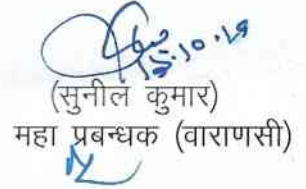 15.10.19
(सुनील कुमार)
महा प्रबन्धक (वाराणसी)